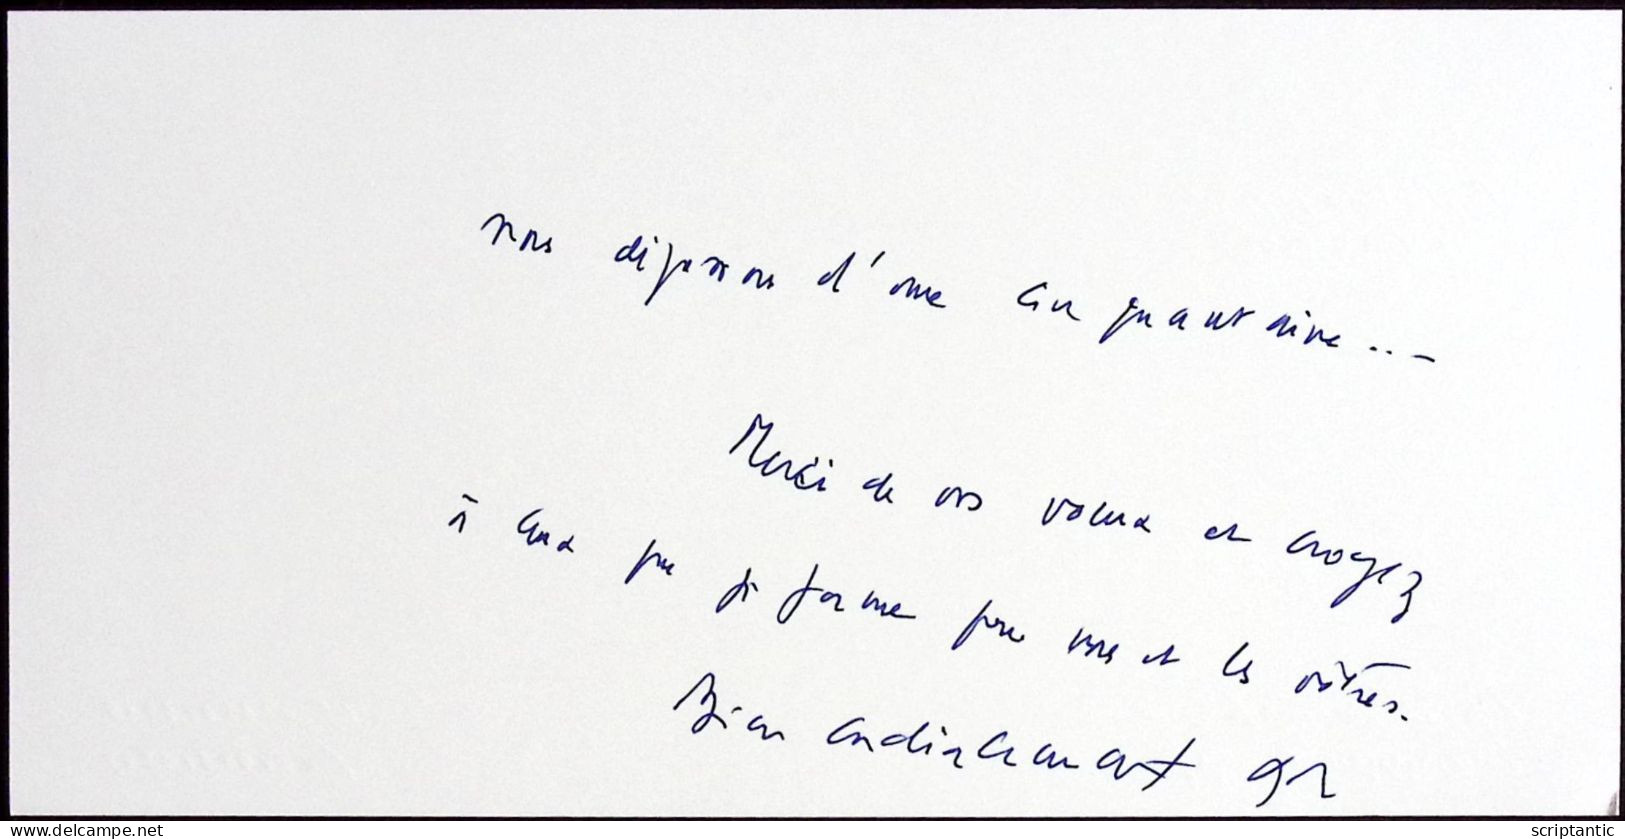 nous disposons d'une cinquantaine...
Merci de vos voeux et croyez
à ceux que je forme pour vous et les vôtres.
Bien cordialement
www.delcampe.net
scriptantic